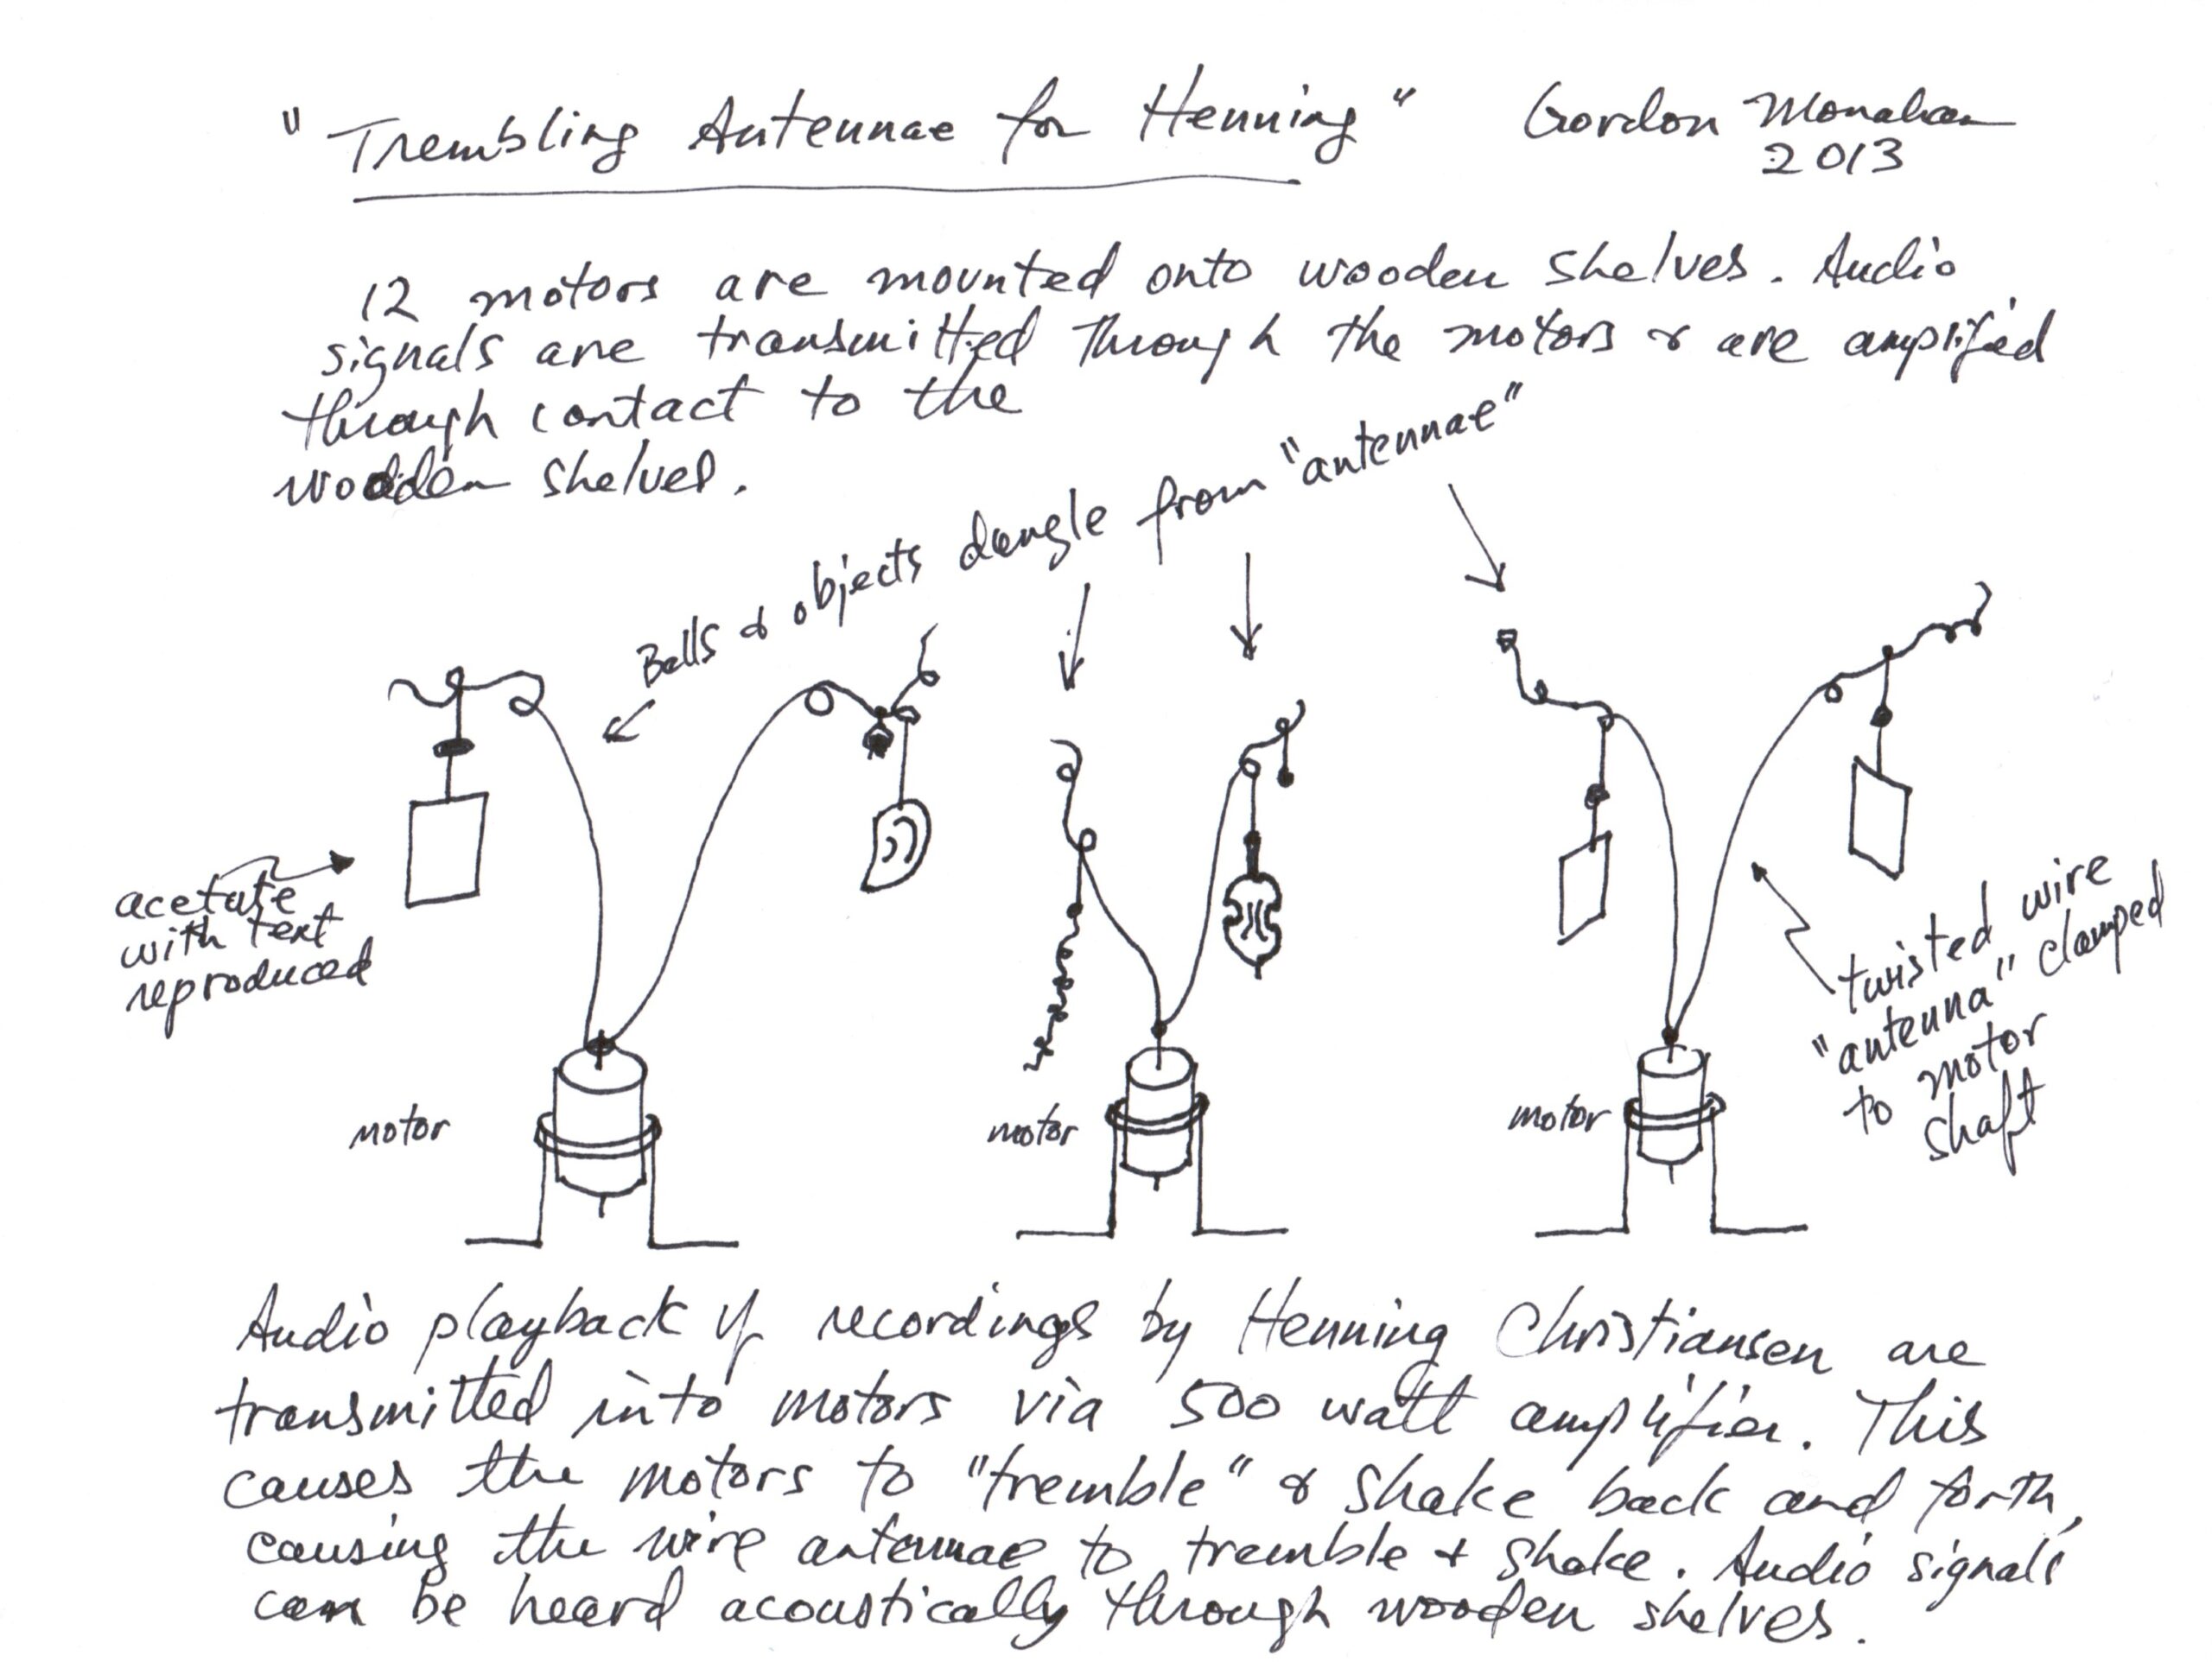 "Trembling Antennae for Henning"
Gordon Monahan
2013
12 motors are mounted onto wooden shelves. Audio
signals are transmitted through the motors & are amplified
through contact to the
wooden shelves.
Bells & objects dangle from "antennae"
acetate
with text
reproduced
twisted wire
"antenna" clamped
to motor
shaft
motor
motor
motor
Audio playback of recordings by Henning Christiansen are
transmitted into motors via 500 watt amplifier. This
causes the motors to "tremble" & shake back and forth,
causing the wire antennae to tremble + shake. Audio signals
can be heard acoustically through wooden shelves.